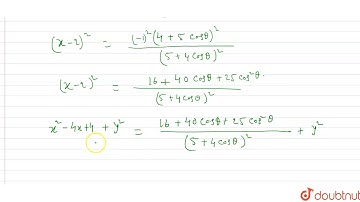 (x-2)² = (-1)²(4 + 5 cosθ)² / (5 + 4 cosθ)²
(x-2)² = 16 + 40 cosθ + 25 cos²θ. / (5 + 4 cosθ)²
x² - 4x + 4 + y² = 16 + 40 cosθ + 25 cos²θ / (5 + 4 cosθ)² + y²
doubtnut